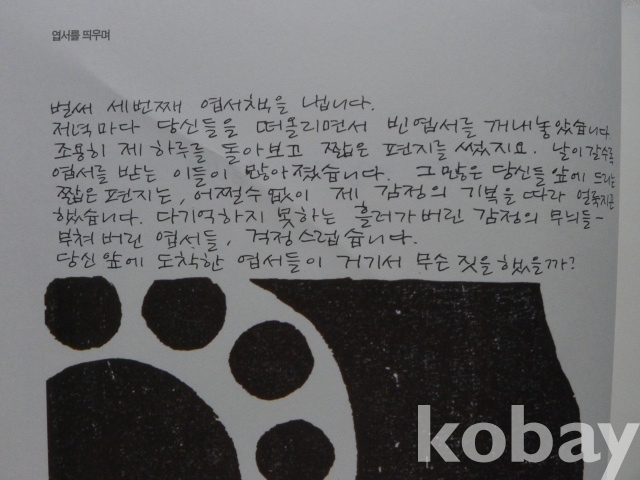 엽서를 띄우며
벌써 세번째 엽서책을 냅니다.
저녁마다 당신들을 떠올리면서 빈엽서를 꺼내놓았습니다.
조용히 제 하루를 돌아보고 짧은 편지를 썼지요. 날이 갈수록
엽서를 받는 이들이 많아졌습니다. 그 많은 당신들 앞에 드리는
짧은 편지는, 어쩔수 없이 제 감정의 기복을 따라 얼룩지곤
했습니다. 다 기억하지 못하는 흘러가버린 감정의 무늬들-
부쳐 버린 엽서들, 걱정스럽습니다.
당신 앞에 도착한 엽서들이 거기서 무슨 짓을 했을까?
kobay